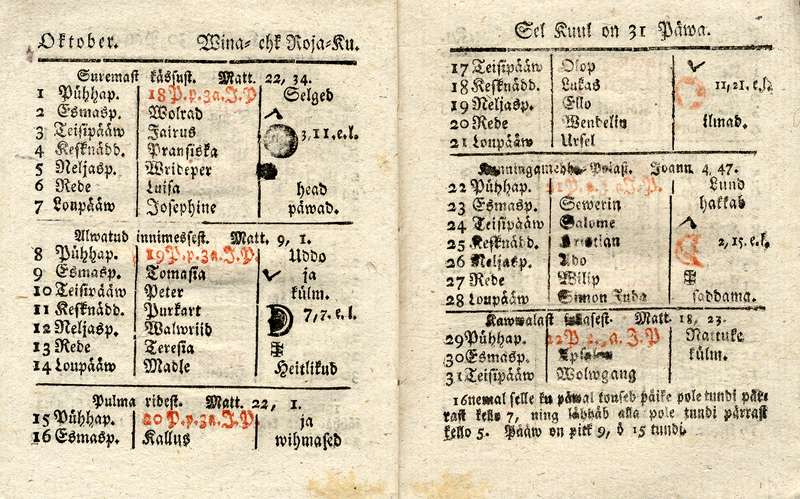 Oktober. Wina- ehk Roja-Ku.
Suremast kässust. Matt. 22, 34.
1 Pühhap. 18 P. p. 3a. J. P Selged
2 Esmasp. Wolrad
3 Teisipääw Jairus 3, 11. e. l.
4 Kesknädd. Pransiska
5 Neljasp. Wrideper
6 Rede Luisa head
7 Loupääw Josephine päwad.
Alwatud innimessest. Matt. 9, 1.
8 Pühhap. 19 P. p. 3a. J. P. Uddo
9 Esmasp. Tomasia ja
10 Teisipääw Peter külm.
11 Kesknädd. Purkart 7, 7. e. l.
12 Neljasp. Walwriid
13 Rede Teresia
14 Loupääw Madle Heitlikud
Pulma ridest. Matt. 22, 1.
15 Pühhap. 20 P. p. 3a. J. P. ja
16 Esmasp. Kallus wihmased
Sel Kuul on 31 Päwa.
17 Teisipääw Olop
18 Kesknädd. Lukas 11, 21. e. l.
19 Neljasp. Ello
20 Rede Wendelin ilmad.
21 Loupääw Ursel
Kunningamehhe Poiast. Joann 4, 47.
22 Pühhap. 21 P. p. 3a J. P. Lund
23 Esmasp. Sewerin hakkab
24 Teisipääw Salome
25 Kesknädd. Kristian 2, 15. e. l.
26 Neljasp. Udo
27 Rede Wilip
28 Loupääw Simon Juda saddama.
Kawwalast sulasest. Matt. 18, 23.
29 Pühhap. 22 P. p. 3a J. P Nattuke
30 Esmasp. külm.
31 Teisipääw Wolwgang
16nemal selle ku päwal touseb päike pole tundi pär-
rast kello 7, ning lähhäb alla pole tundi pärrast
kello 5. Pääw on pitk 9, ö 15 tundi.